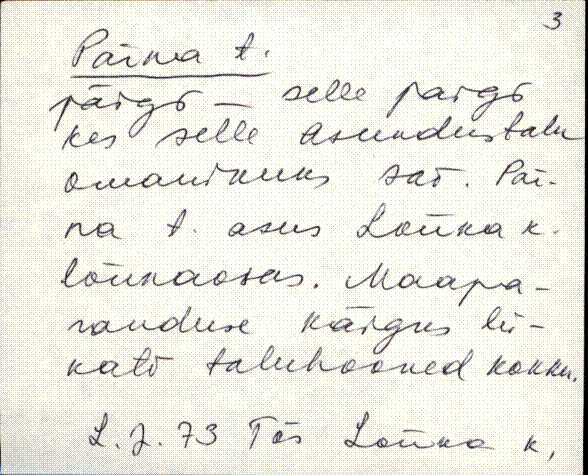 3
Pärna t.
pärgo — selle pargo
kes selle asundustalu
omanikuks sai. Pär-
na t. asus Lõuka k.
lõunaosas. Maapa-
randuse käigus lü-
kati taluhooned kokku.
L. J. 73 Tõs Lõuka k,